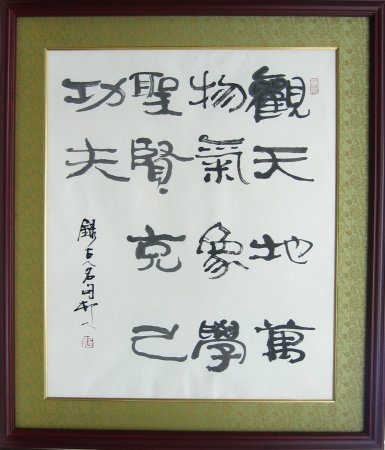 觀天地萬
物氣象學
聖賢克己
功夫
錄古人名句